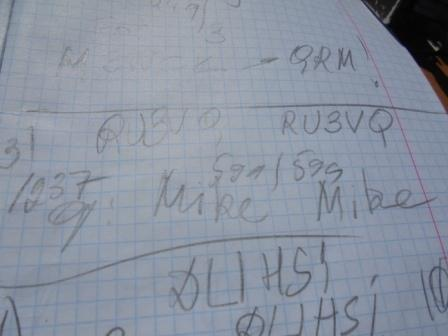 - QRM!
RU3VQ RU3VQ
3)
1237
599/599
op: Mike Mike
DL1HSI
DL1HSI